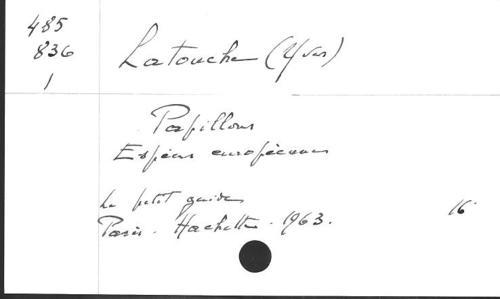 485
836
1
Latouche (Yves)
Papillons
Espèces européennes
Le petit guide
Paris. Hachette. 1963. 16